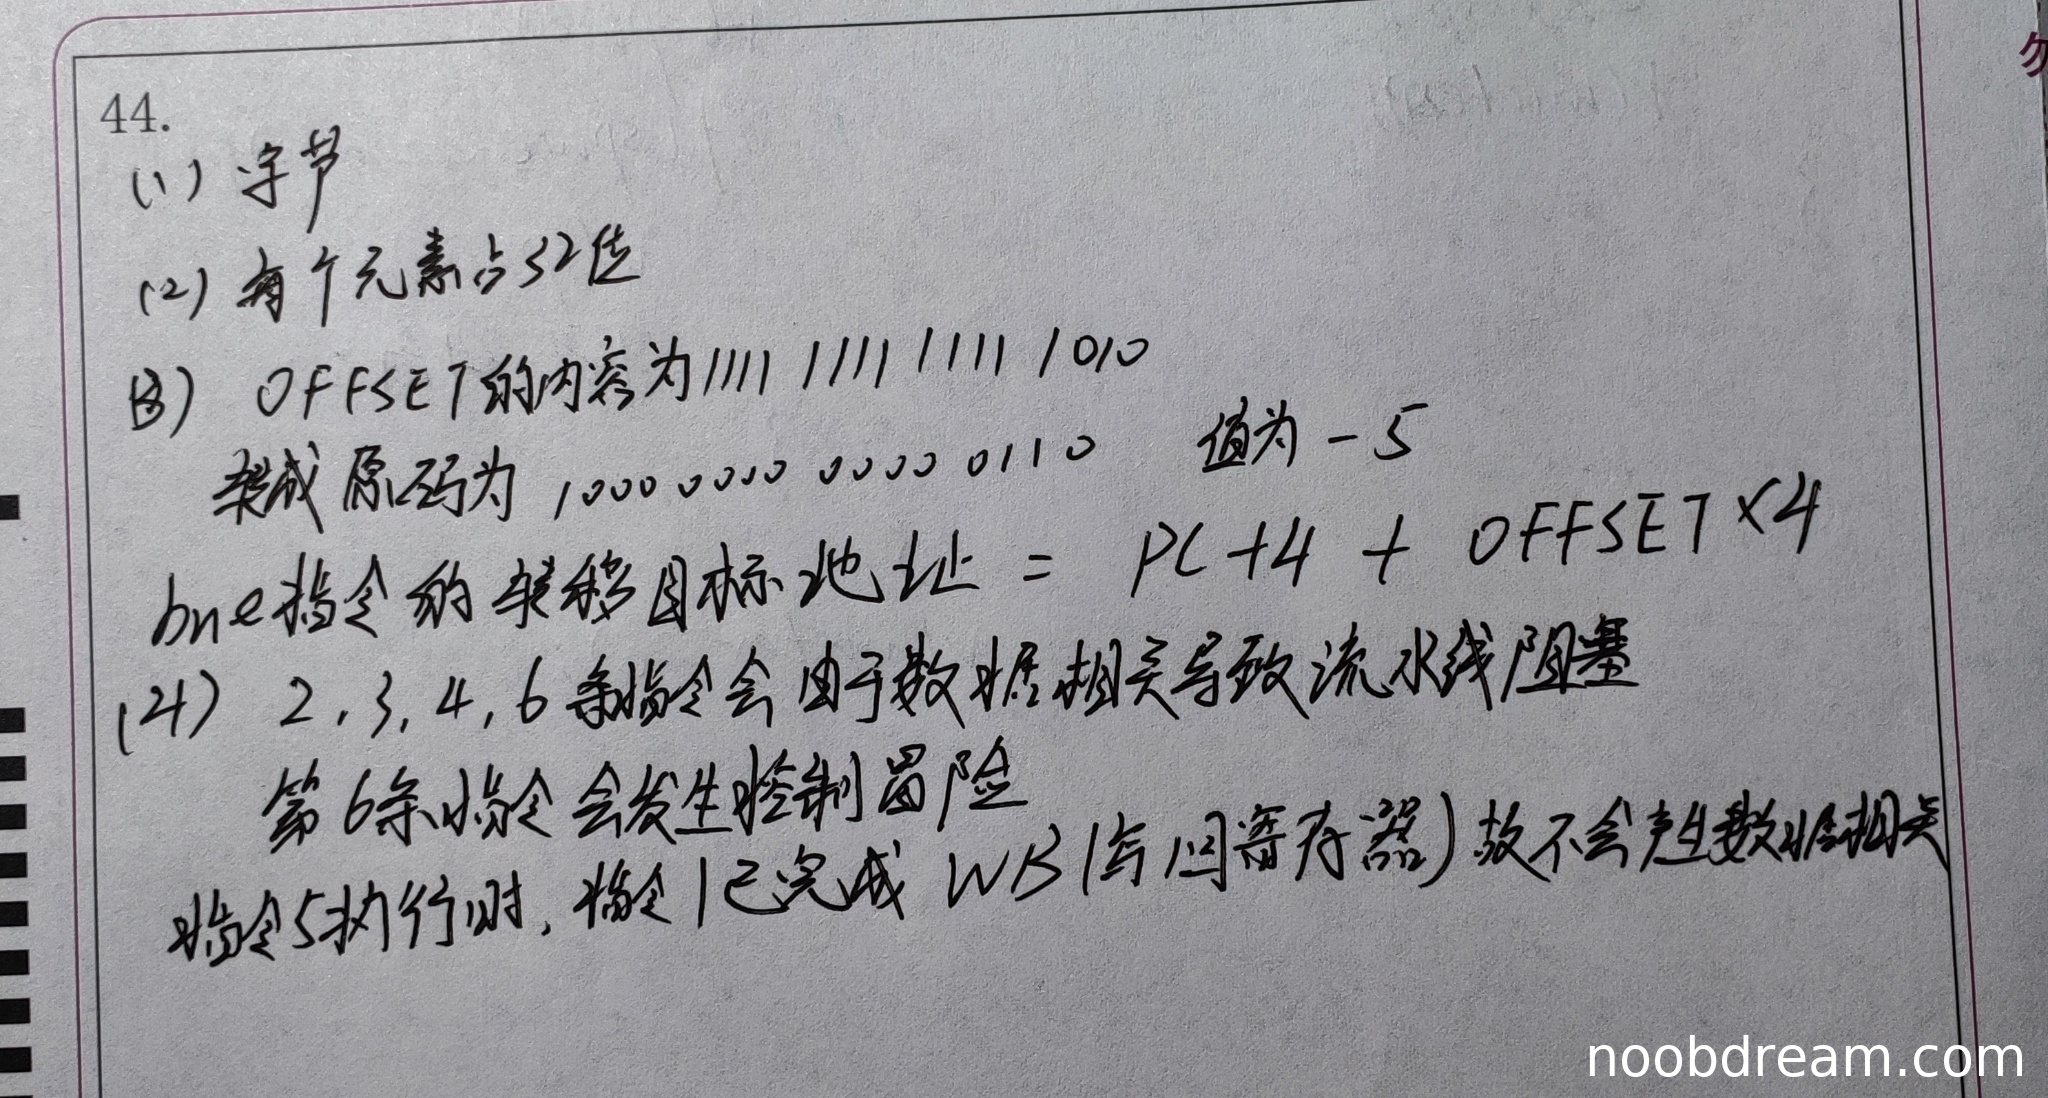 勿
44.
(1) 字节
(2) 每个元素占32位
(3) OFFSET的内容为1111 1111 1111 1010
转换成原码为 1000 0000 0000 0110 值为 -5
bne指令的转移目标地址 = PC+4 + OFFSET×4
(4) 2, 3, 4, 6 条指令会由于数据相关导致流水线阻塞
第6条指令会发生控制冒险
指令5执行时, 指令1已完成 WB (写回寄存器) 故不会产生数据相关
noobdream.com